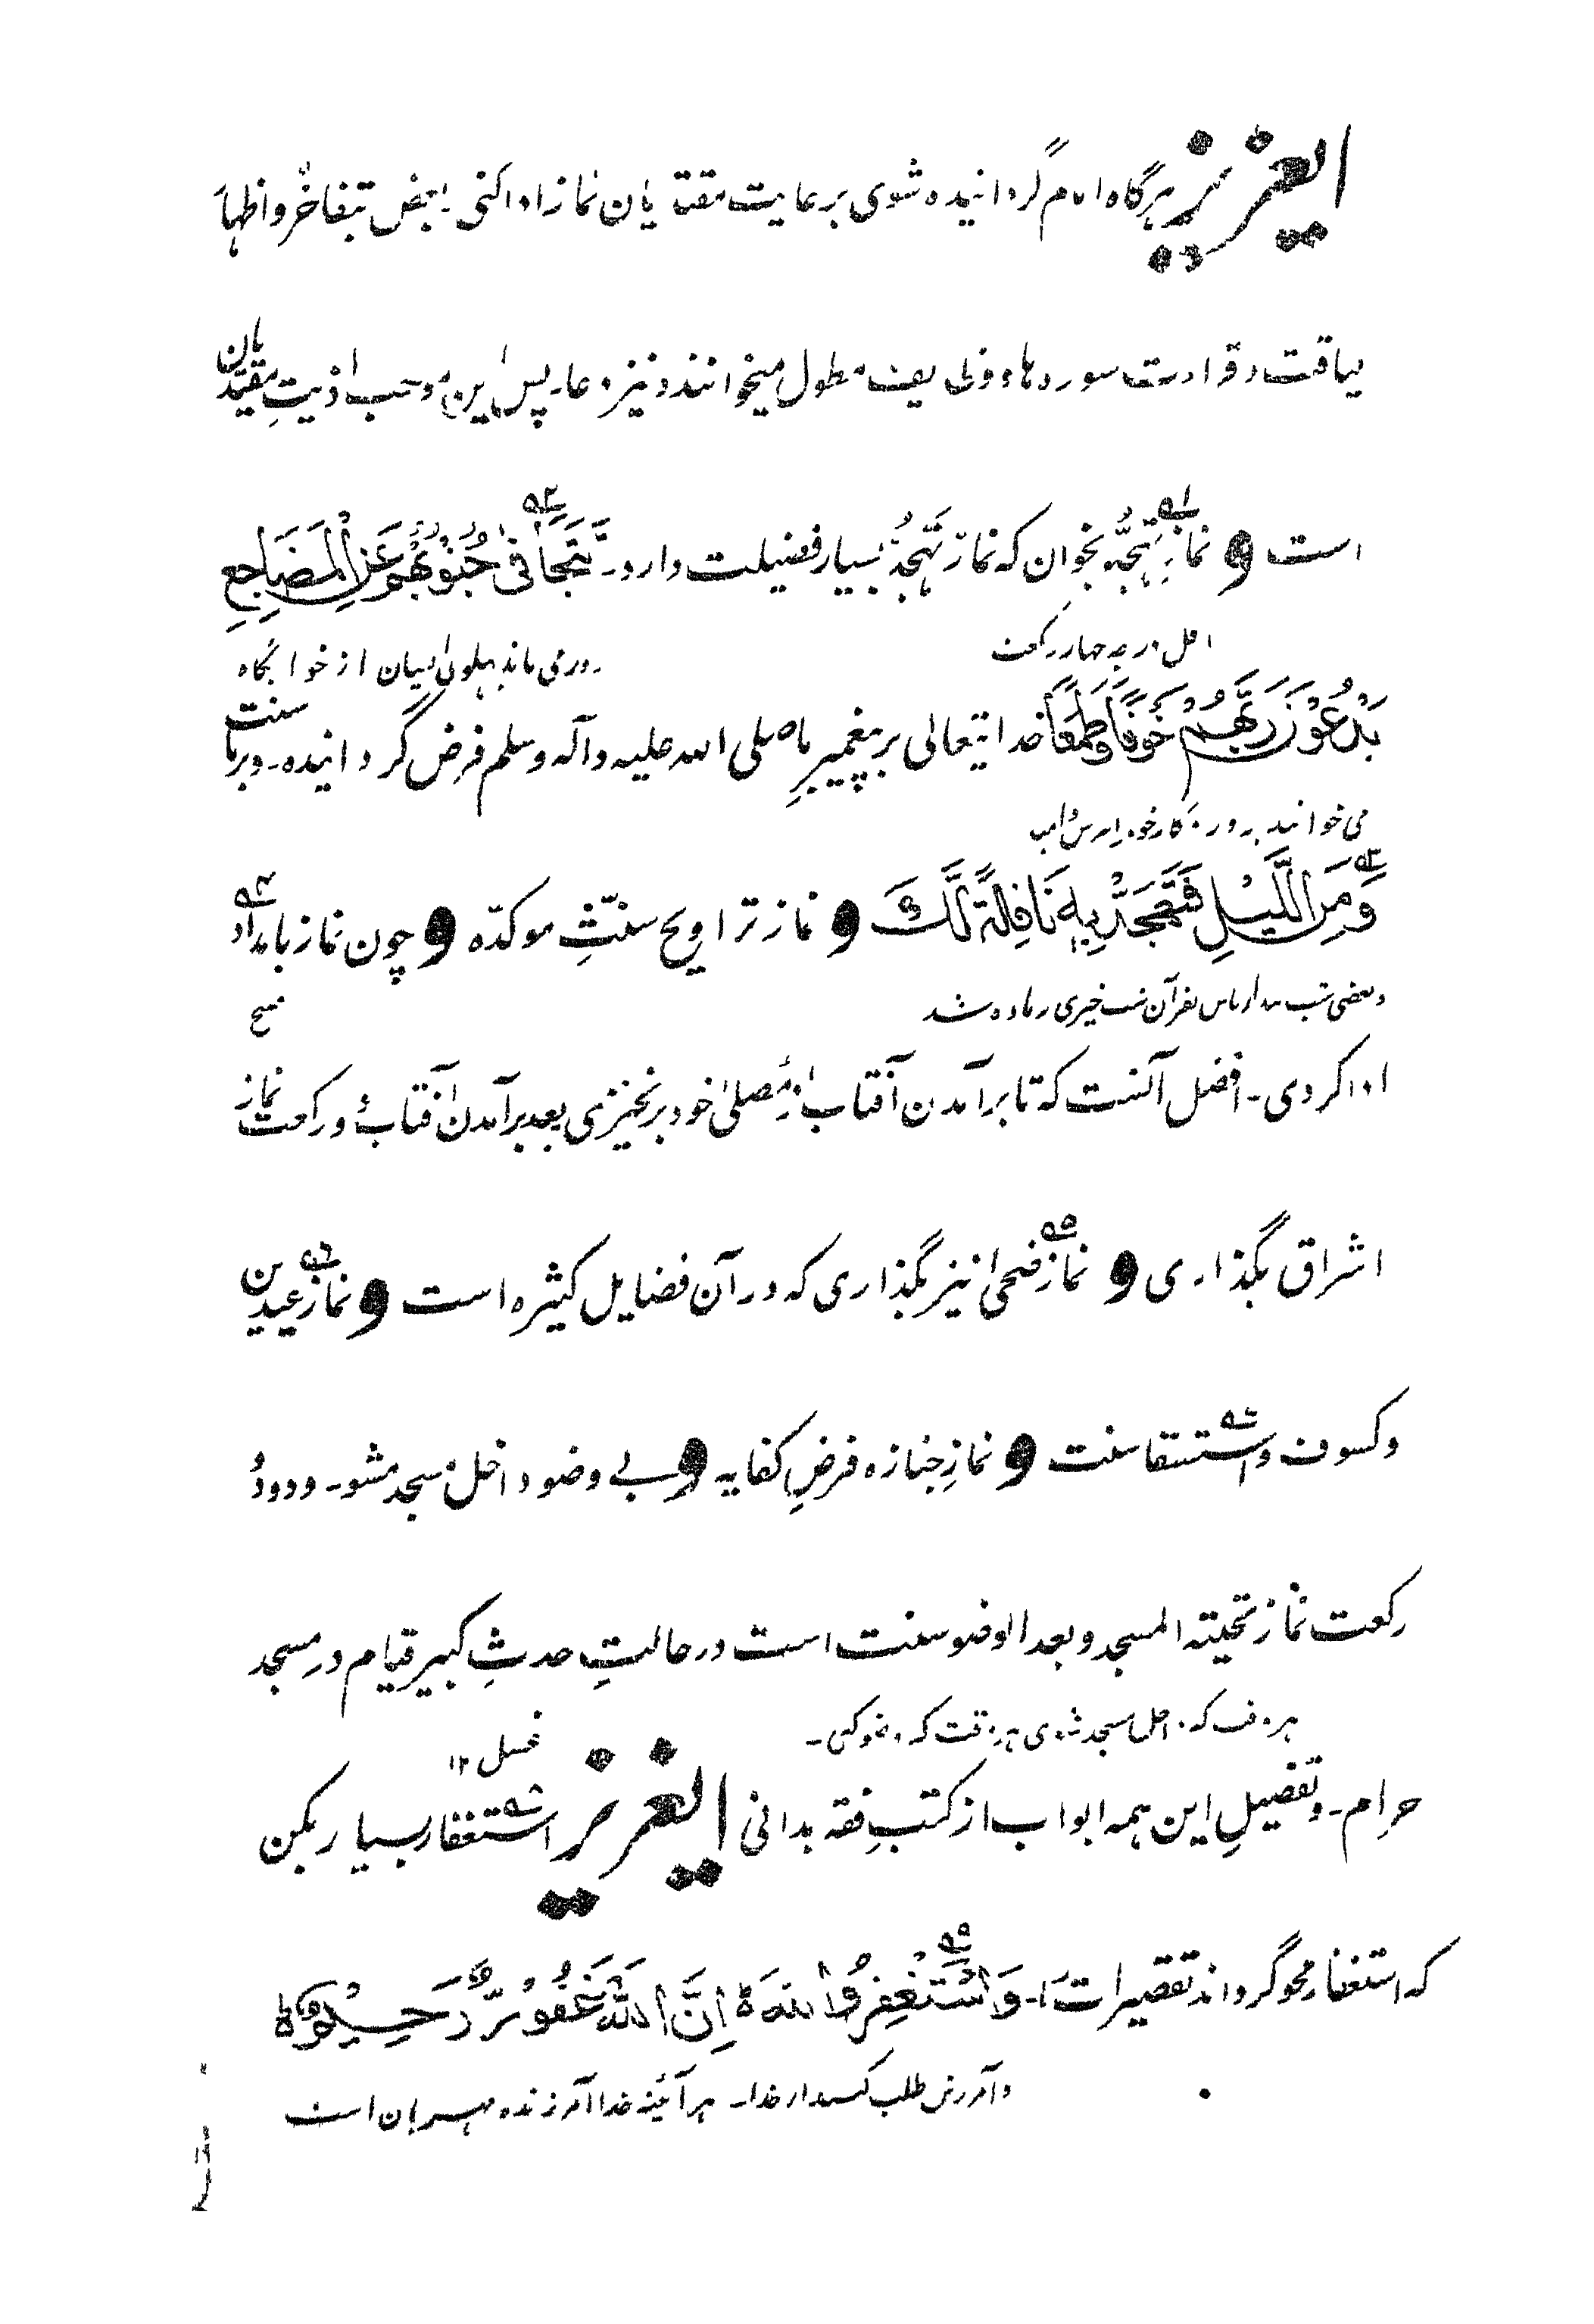 ایعزیز هرگاه امام گردانیده شوی برعایت مقتدیان نماز ادا کنی ۔ بعض بتفاخر و اظهار
لیاقت در قراءت سوره‌ها و وظایف مطول میخوانند و نیزه دعا ۔ پس این موجب اذیتِ مقتدیان
است و نمازِ تهجّد بخوان که نماز تهجّد بسیار فضیلت دارد ۔ تَتَجَافٰی جُنُوْبُهُمْ عَنِ الْمَضَاجِعِ
اقل درجه چهار رکعت
دور می ماند پهلوی ایشان از خوابگاه
یَدْعُوْنَ رَبَّهُمْ خَوْفًا وَّطَمَعًا خدایتعالی بر پیغمبرِ ما صلی الله علیه وآله وسلم فرض گردانیده ۔ و بر ما سنت
می خوانند پروردگار خود
وَمِنَ اللَّیْلِ فَتَهَجَّدْ بِهٖ نَافِلَةً لَّكَ و نماز تراویح سنتِ موکدّه و چون نماز بامداد
و بعضی شب بیدار باش بقرآن شب خیزی زیاده شد
صبح
ادا کردی ۔ افضل آنست که تا برآمدن آفتاب از مُصلیٰ خود برنخیزی بعد برآمدن آفتاب دو رکعت نماز
اشراق بگذاری و نماز ضحیٰ نیز بگذاری که در آن فضایل کثیره است و نماز عیدین
وکسوف و استسقا سنت و نمازِ جنازه فرضِ کفایه و بے وضو داخل مسجد مشو ۔ و دو دو
رکعت نماز تحیته المسجد و بعد الوضو سنت است در حالتِ حدثِ کبیر قیام در مسجد
هر وقت که داخل مسجد شوی هر وقت که وضو کنی ۔
غسل ۱۲
حرام ۔ و تفصیلِ این همه ابواب از کتبِ فقه بدانی ایعزیز استغفار بسیار بکن
که استغفار محو گرداند تقصیرات را ۔ وَاسْتَغْفِرُوا اللهَ ؕ اِنَّ اللهَ غَفُوْرٌ رَّحِیْمٌ ؕ
و آمرزش طلب کنید از خدا ۔ هر آئینه خدا آمرزنده مهربان است